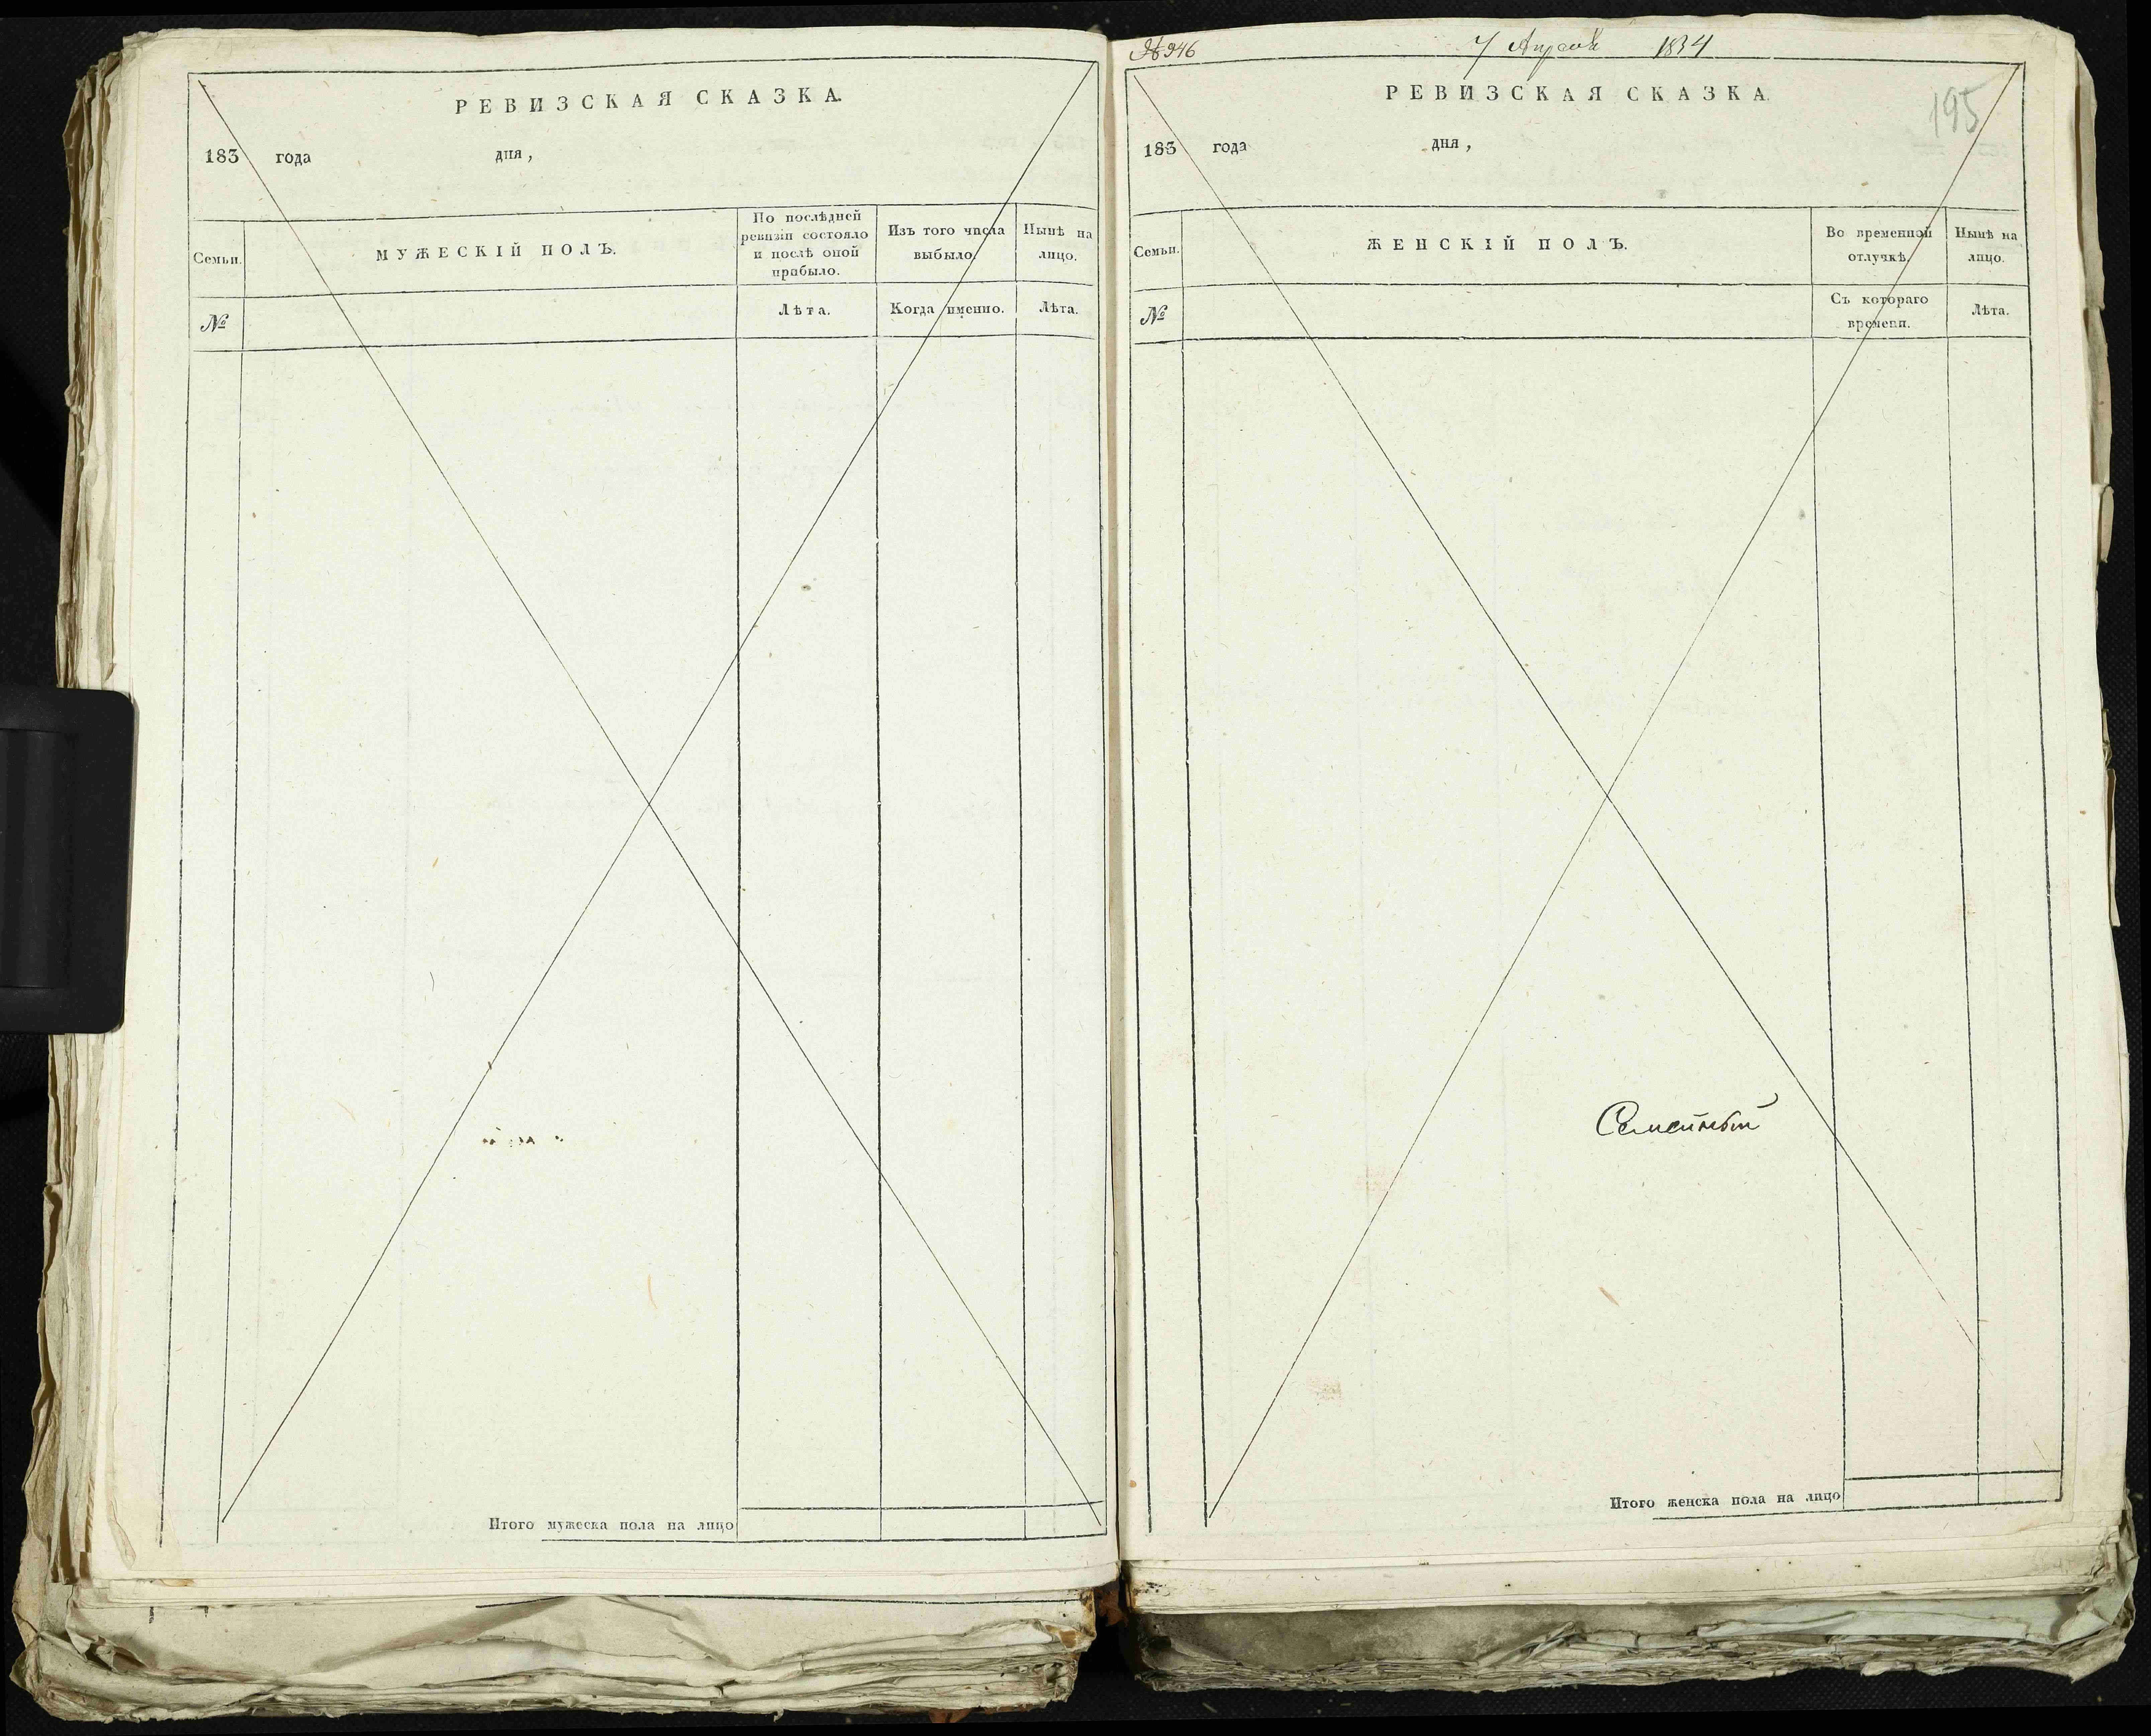 РЕВИЗСКАЯ СКАЗКА.
183 года дня,
Семьи.
МУЖЕСКІЙ ПОЛЪ.
По послѣдней
ревизіи состояло
и послѣ оной
прибыло.
Изъ того числа
выбыло.
Нынѣ на
лицо.
№
Лѣта.
Когда именно.
Лѣта.
Итого мужеска пола на лицо
№ 946
7 Апреля 1834
РЕВИЗСКАЯ СКАЗКА.
195
183 года дня,
Семьи.
ЖЕНСКІЙ ПОЛЪ.
Во временной
отлучкѣ.
Нынѣ на
лицо.
№
Съ котораго
времени.
Лѣта.
Семейный
Итого женска пола на лицо